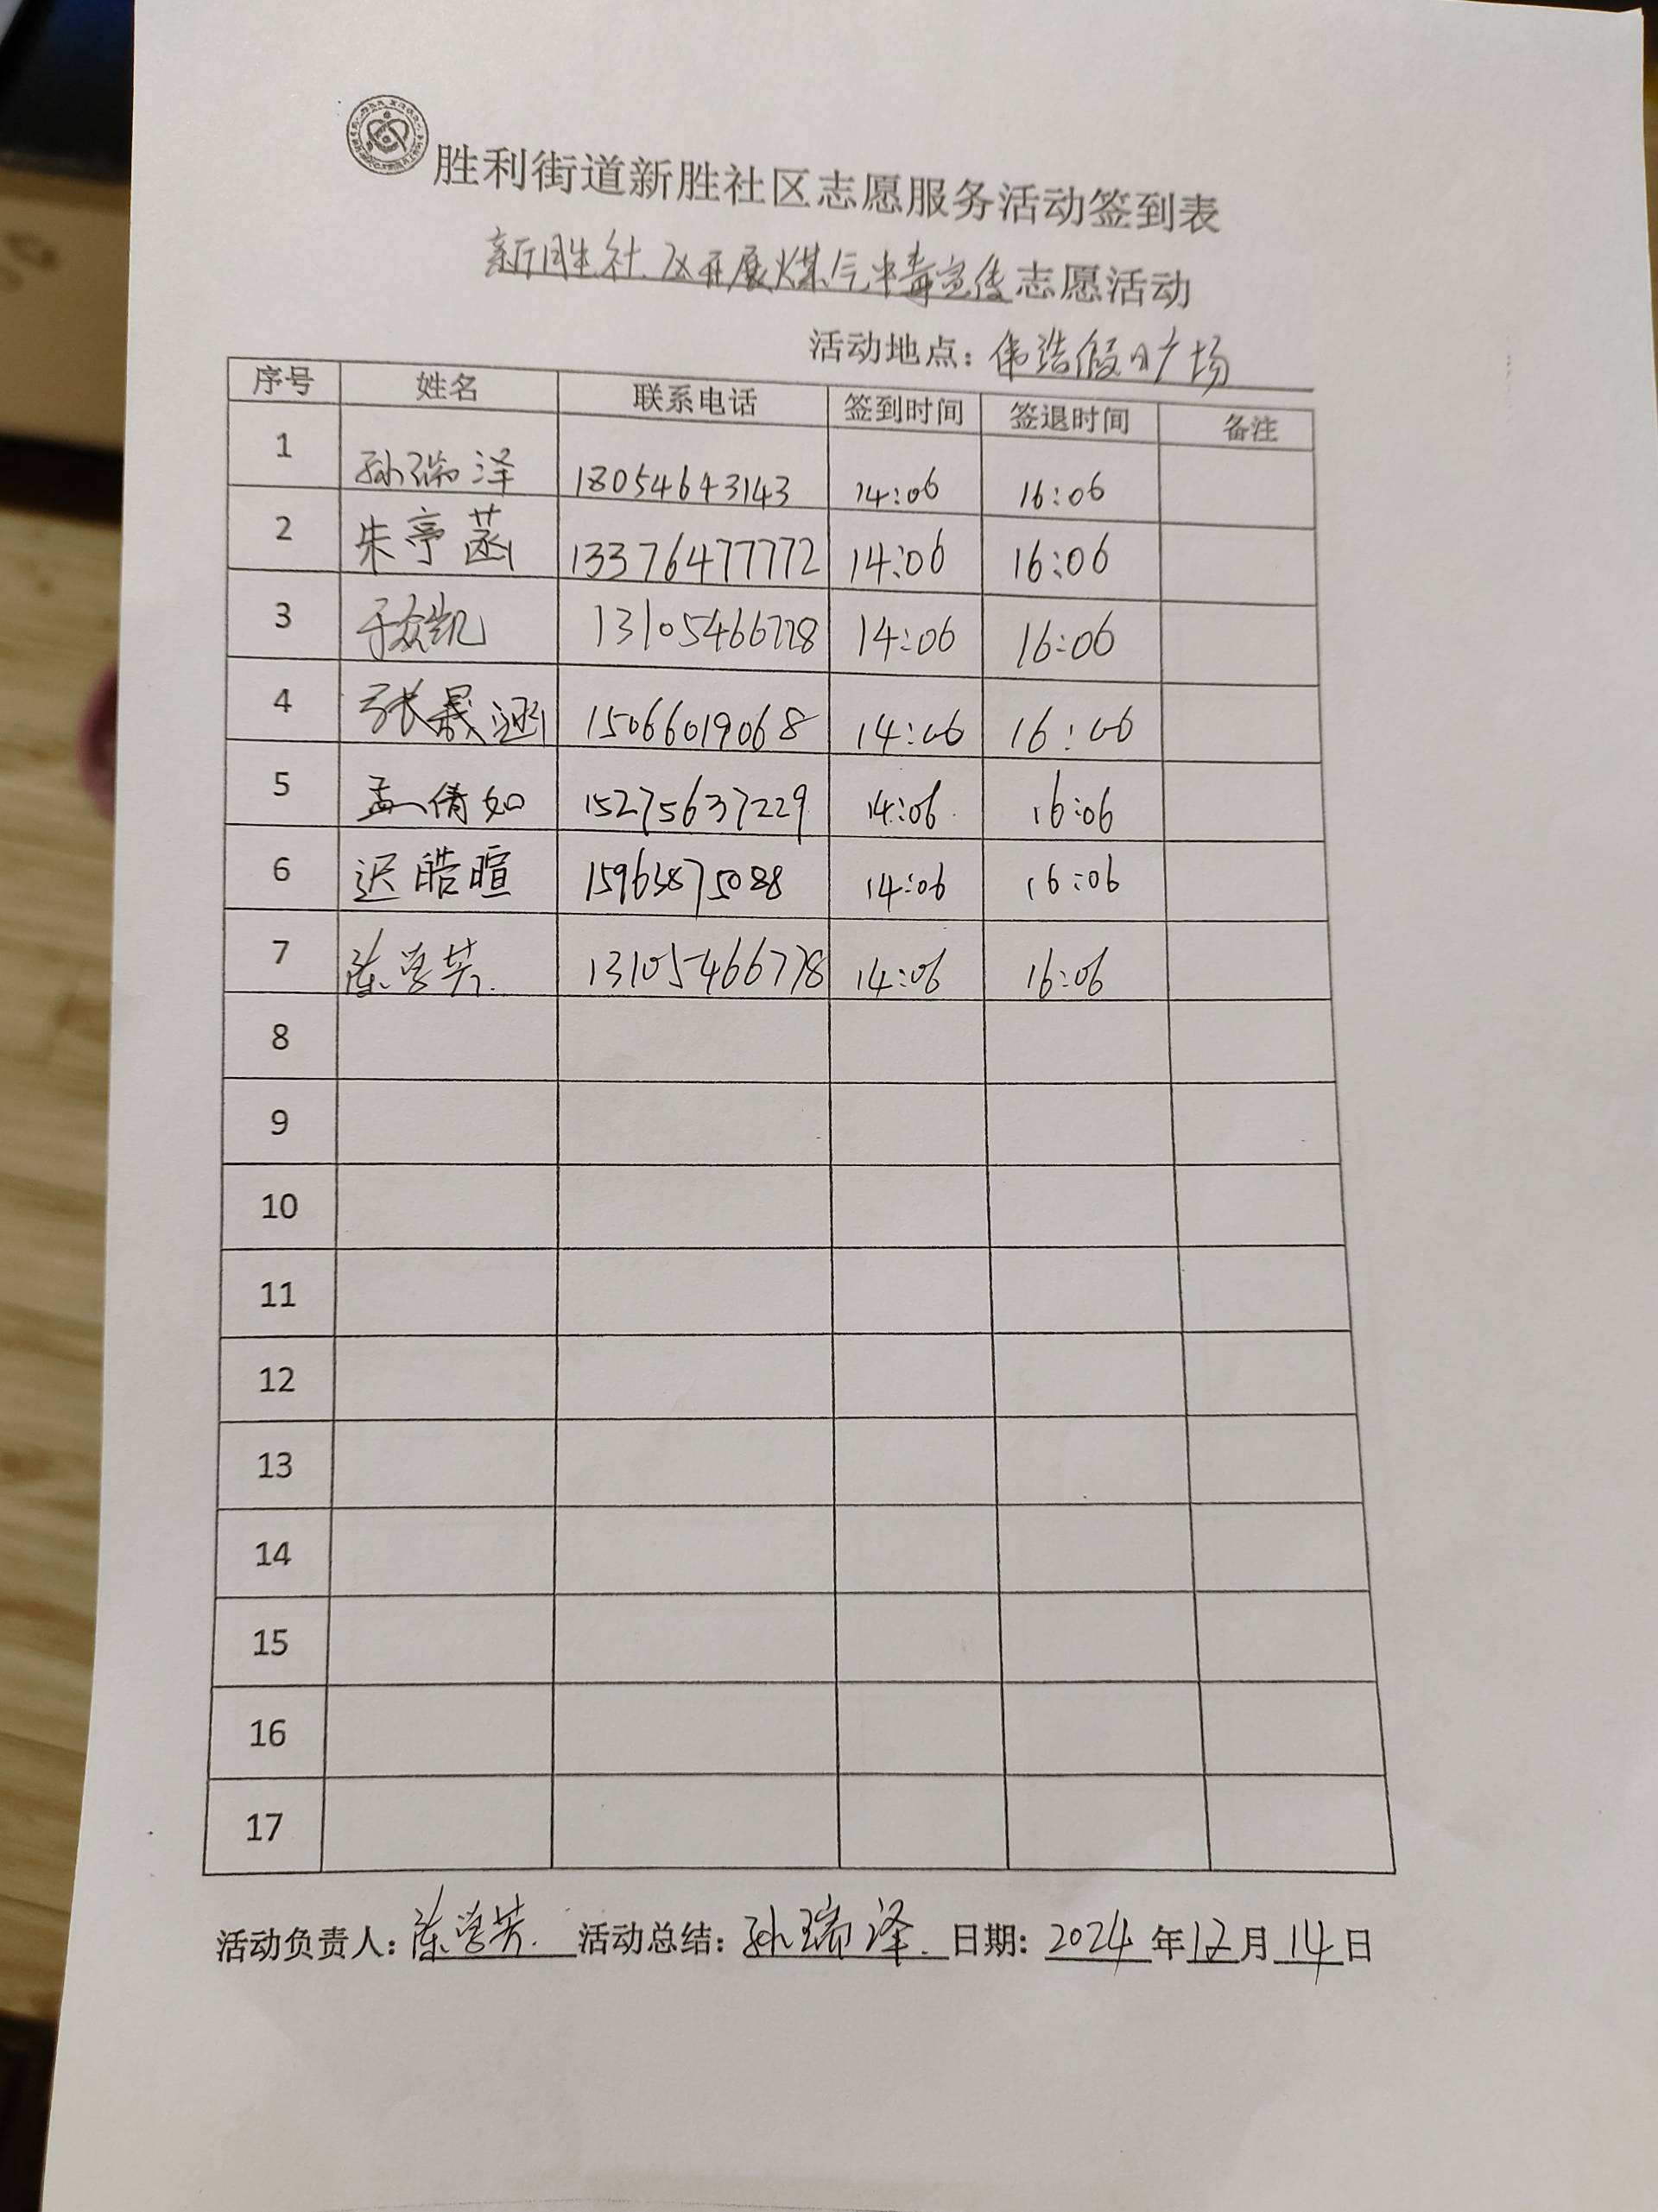 胜利街道新胜社区志愿服务活动签到表
新胜社区开展煤气中毒宣传志愿活动
活动地点：伟浩假日广场
序号 姓名 联系电话 签到时间 签退时间 备注
1 孙瑞泽 18054643143 14:06 16:06
2 朱亭菡 13376477772 14:06 16:06
3 于众凯 13105466778 14:06 16:06
4 张晟涵 15066019068 14:06 16:06
5 孟倩如 15275637229 14:06 16:06
6 迟皓暄 15963875088 14:06 16:06
7 陈学芳 13105466778 14:06 16:06
8
9
10
11
12
13
14
15
16
17
活动负责人：陈学芳 活动总结：孙瑞泽 日期：2024年12月14日